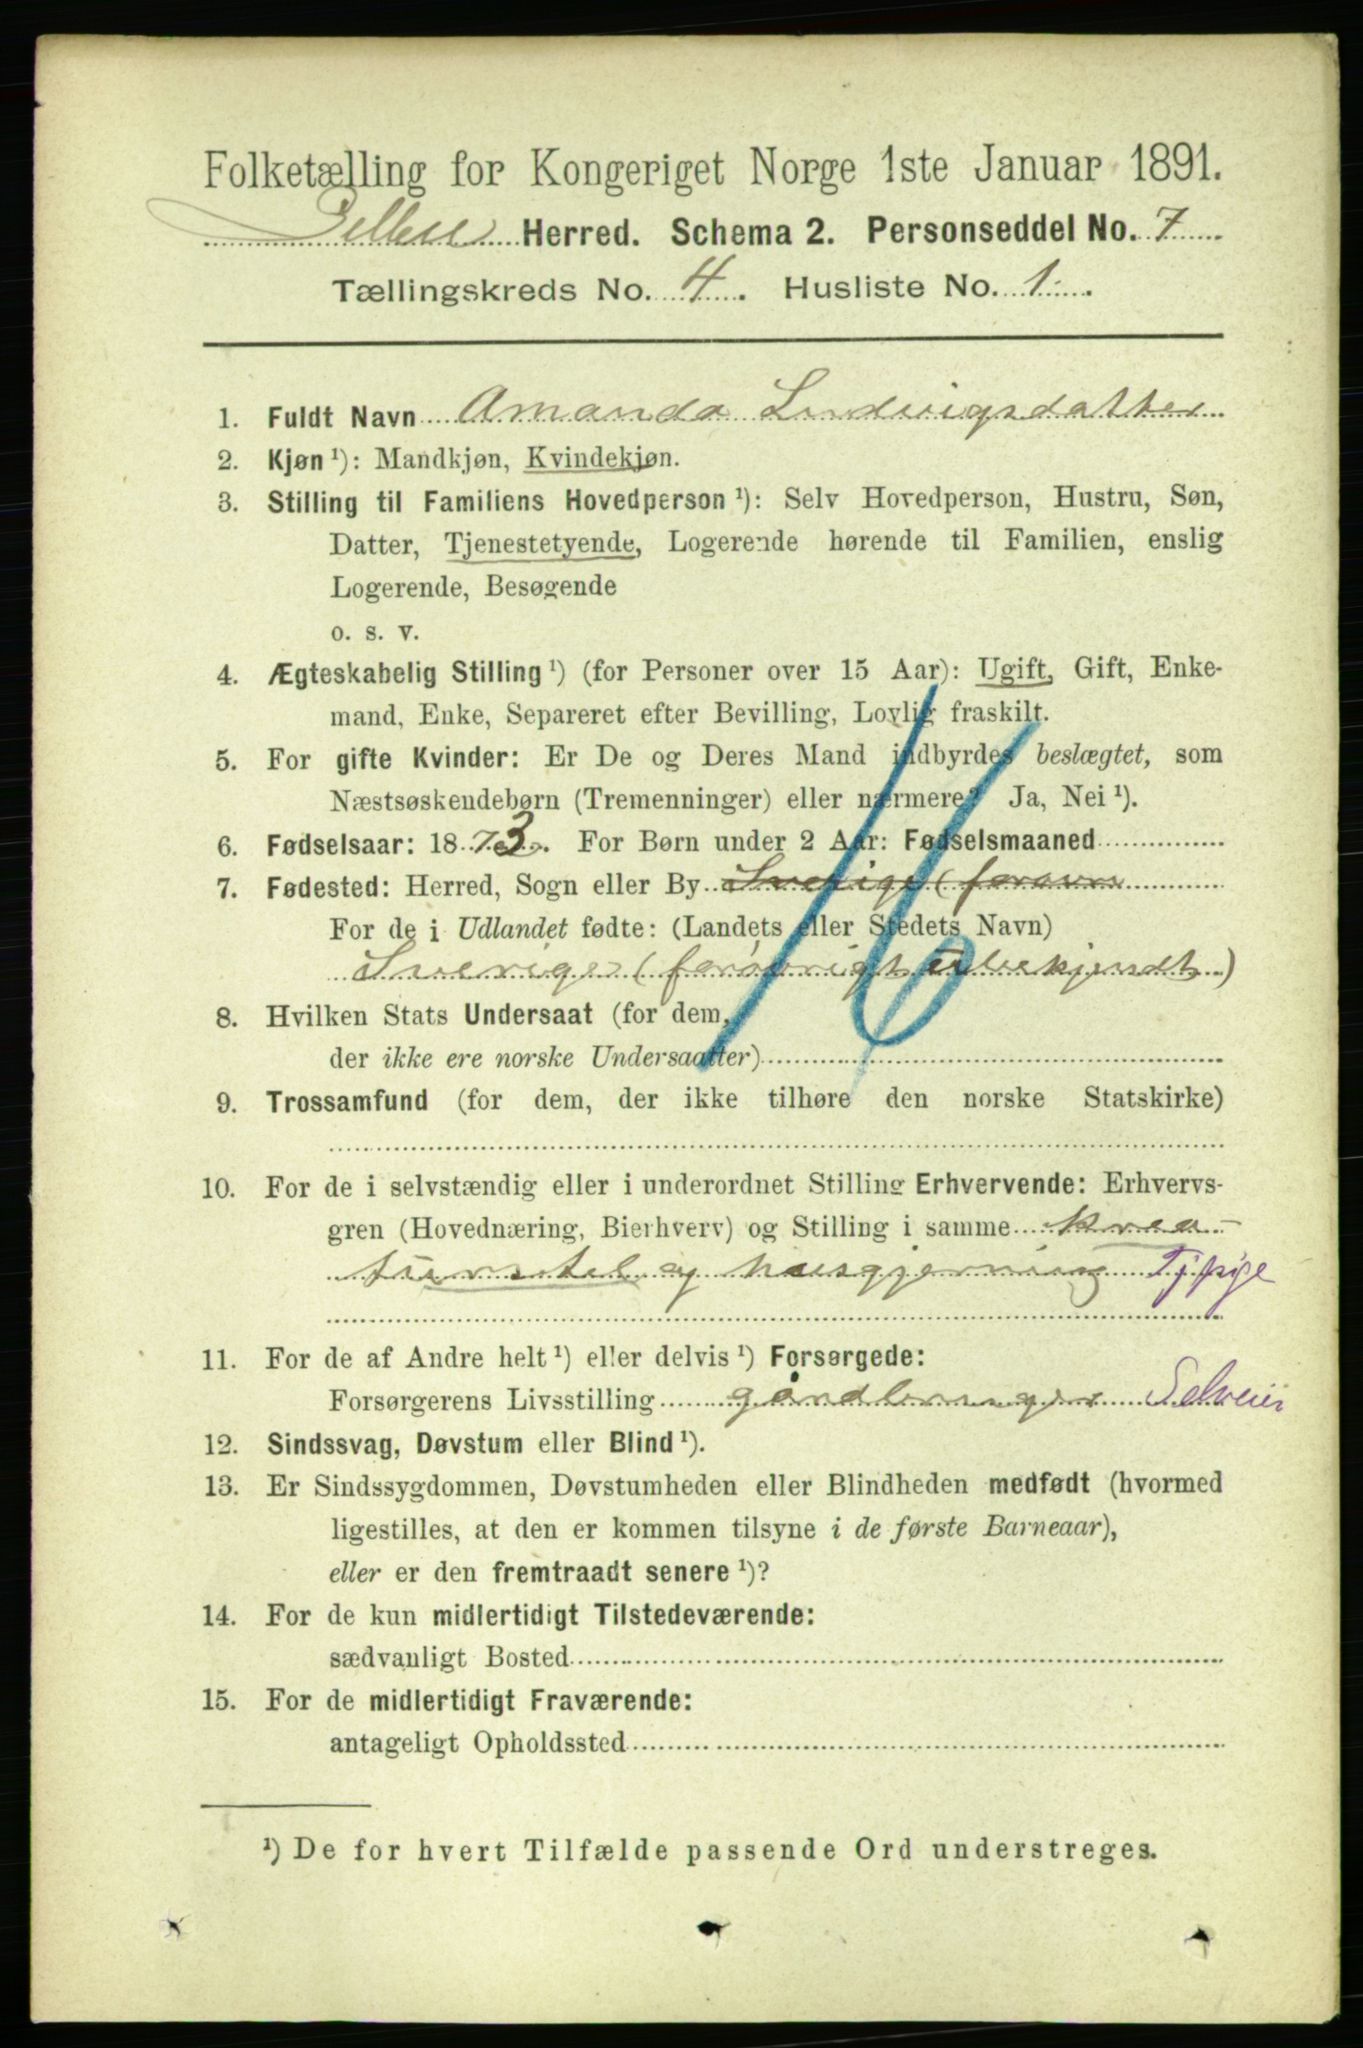 Folketælling for Kongeriget Norge 1ste Januar 1891.
Herred. Schema 2. Personseddel No. 7
Tællingskreds No. 4. Husliste No. 1.
1. Fuldt Navn Amanda Ludvigsdatter
2. Kjøn ¹): Mandkjøn, Kvindekjøn.
3. Stilling til Familiens Hovedperson ¹): Selv Hovedperson, Hustru, Søn,
Datter, Tjenestetyende, Logerende hørende til Familien, enslig
Logerende, Besøgende
o. s. v.
4. Ægteskabelig Stilling ¹) (for Personer over 15 Aar): Ugift, Gift, Enke-
mand, Enke, Separeret efter Bevilling, Lovlig fraskilt.
5. For gifte Kvinder: Er De og Deres Mand indbyrdes beslægtet, som
Næstsøskendebørn (Tremenninger) eller nærmere? Ja, Nei ¹).
6. Fødselsaar: 1873. For Børn under 2 Aar: Fødselsmaaned
7. Fødested: Herred, Sogn eller By Sverige (forøvr
For de i Udlandet fødte: (Landets eller Stedets Navn)
Sverige (forøvrigt ubekjendt)
16
8. Hvilken Stats Undersaat (for dem,
der ikke ere norske Undersaatter)
9. Trossamfund (for dem, der ikke tilhøre den norske Statskirke)
10. For de i selvstændig eller i underordnet Stilling Erhvervende: Erhvervs-
gren (Hovednæring, Bierhverv) og Stilling i samme krea-
turstel og husgjerning Tjpige
11. For de af Andre helt ¹) eller delvis ¹) Forsørgede:
Forsørgerens Livsstilling gårdbruger Selveier
12. Sindssvag, Døvstum eller Blind ¹).
13. Er Sindssygdommen, Døvstumheden eller Blindheden medfødt (hvormed
ligestilles, at den er kommen tilsyne i de første Barneaar),
eller er den fremtraadt senere ¹)?
14. For de kun midlertidigt Tilstedeværende:
sædvanligt Bosted
15. For de midlertidigt Fraværende:
antageligt Opholdssted
¹) De for hvert Tilfælde passende Ord understreges.